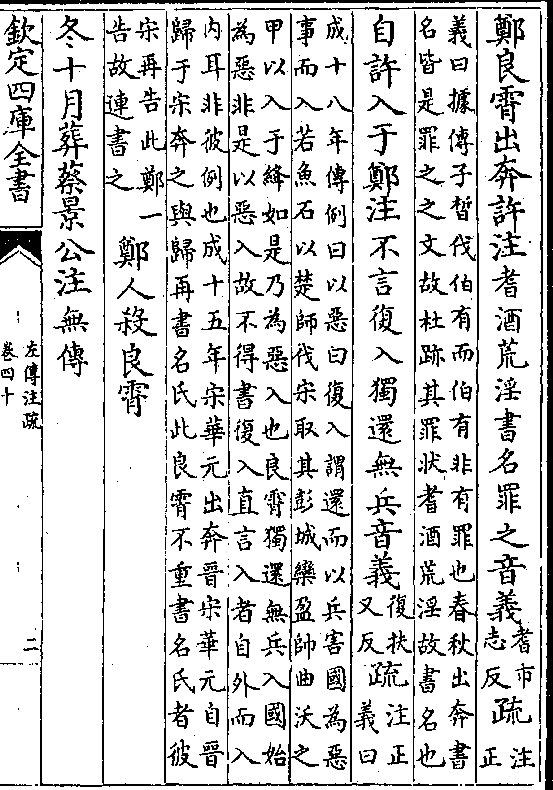 鄭良霄出奔許注耆酒荒淫書名罪之音義耆市志反疏注正
義曰據傳子皙伐伯有而伯有非有罪也春秋出奔書
名皆是罪之之文故杜跡其罪狀耆酒荒淫故書名也
自許入于鄭注不言復入獨還無兵音義復扶又反疏注正義曰
成十八年傳例曰以惡曰復入謂還而以兵害國為惡
事而入若魚石以楚師伐宋取其彭城欒盈帥曲沃之
甲以入于絳如是乃為惡入也良霄獨還無兵入國始
為惡非是以惡入故不得書復入直言入者自外而入
內耳非彼例也成十五年宋華元出奔晉宋華元自晉
歸于宋奔之與歸再書名氏此良霄不重書名氏者彼
宋再告此鄭一
告故連書之
鄭人殺良霄
冬十月葬蔡景公注無傳
欽定四庫全書
左傳注疏
卷四十
二